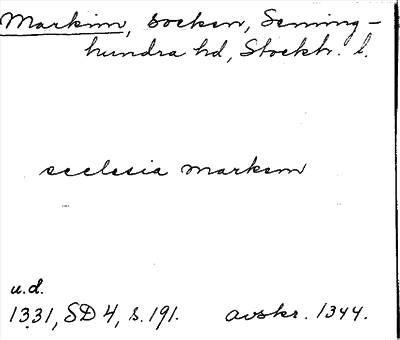 Markim, socken, Seming-
hundra hd, Stockh. l.
ecclesia markem
u.d.
1331, SD 4, s. 191. avskr. 1344.